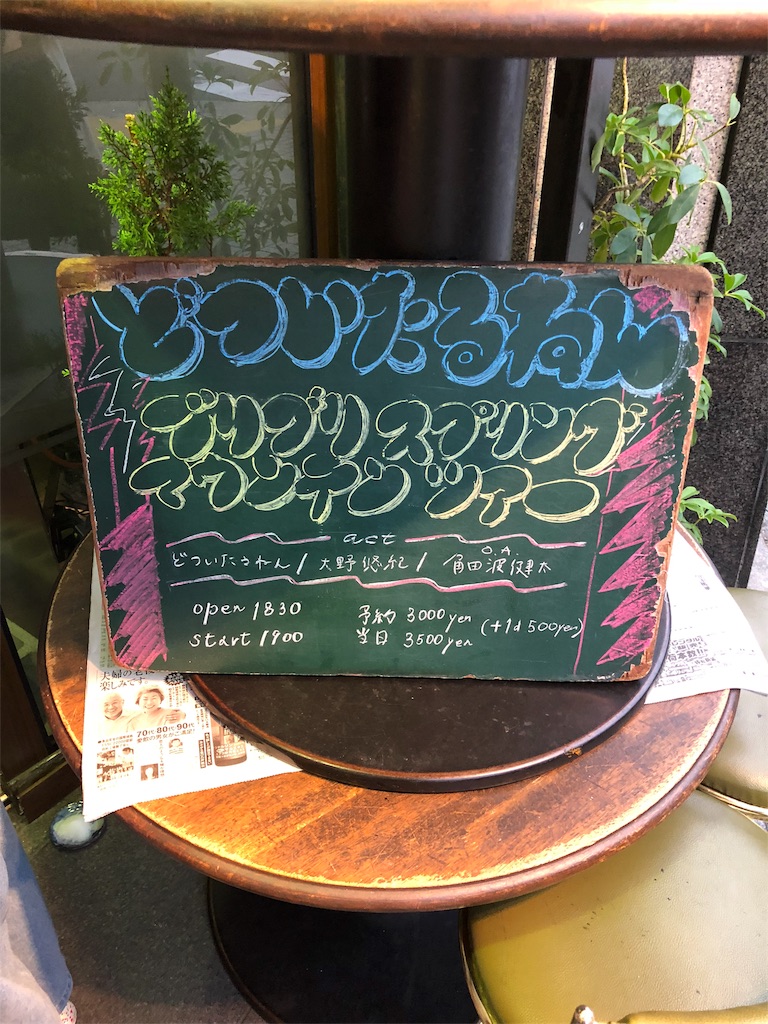 どついたるねん
デリブリ スプリング
マウンテン ツアー
act
どついたるねん / 大野悠紀 / O.A. 角田波健太
open 1830
予約 3000yen
start 1900
当日 3500yen
(+1d 500yen)
楽しみです
70代 80代 90代